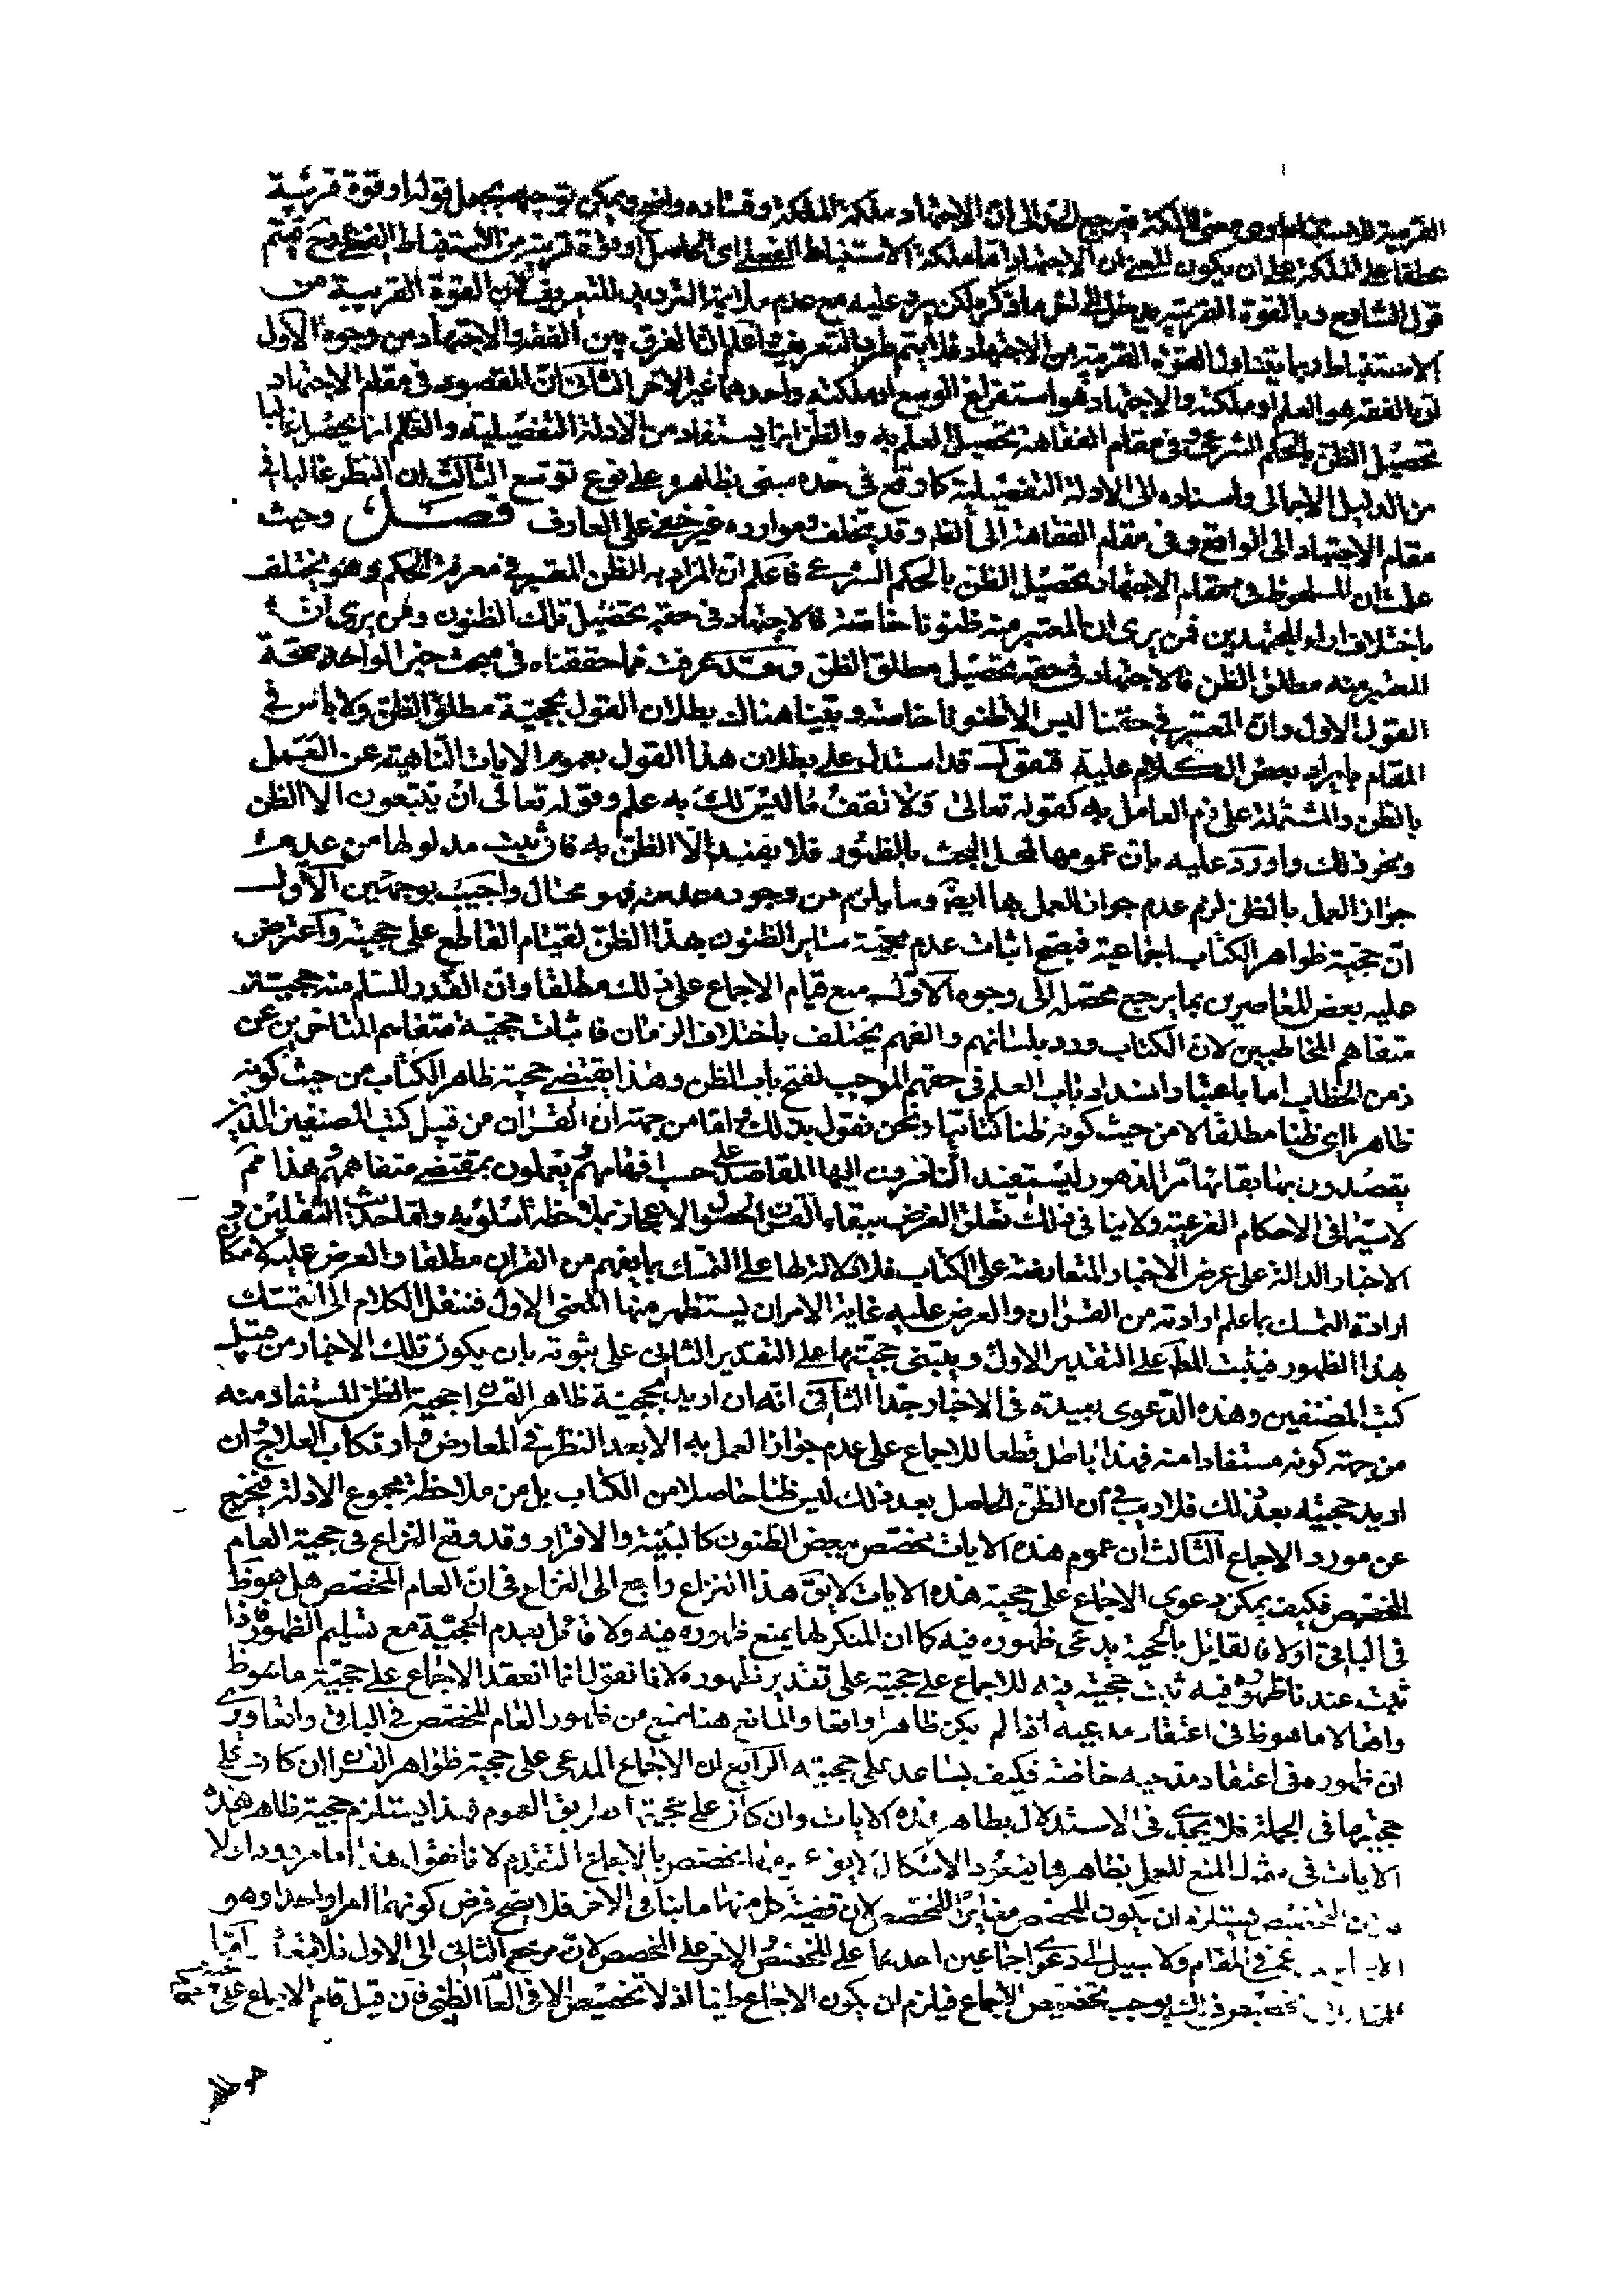 القريبة للاستنباط وهي معنى الملكة فيرجع الحد إلى ان الاجتهاد ملكة الملكة وفساده واضح ويمكن توجيهه بجعل قوله او قوة قريبة
عطفا على الملكة على ان يكون المعنى ان الاجتهاد اما ملكة الاستنباط الفعلي اى الحاصل او قوة قريبة من الاستنباط الفعلي وح فيتم
قول الشارح وبالقوة القريبة يدخل الى اخر ما ذكر لكن يرد عليه مع عدم ملايمة الترديد للتعريف ان القوة القريبة من
الاستنباط ربما يتناول القوة القريبة من الاجتهاد فلا يتم طرد التعريف واعلم ان الفرق بين الفقه والاجتهاد من وجوه الاول
ان الفقه هو العلم او ملكته والاجتهاد هو استفراغ الوسع او ملكته واحدهما غير الاخر الثاني ان المقصود في مقام الاجتهاد
تحصيل الظن بالحكم الشرعي وفي مقام الفقاهة تحصيل العلم به والظن انما يستفاد من الادلة التفصيلية والعلم انما يحصل غالبا
من الدليل الاجمالى واسناده الى الادلة التفصيلية كما وقع في حده مبنى بظاهره على نوع توسع الثالث ان النظر غالبا في
مقام الاجتهاد الى الواقع وفى مقام الفقاهة الى الظاهر وقد يتخلف وموارده غير خفي على العارف فصل وحيث
علمت ان الملحوظ في مقام الاجتهاد تحصيل الظن بالحكم الشرعي فاعلم ان المراد به الظن المعتبر في معرفة الحكم وهو يختلف
باختلاف اراء المجتهدين فمن يرى ان المعتبر منه ظنونا خاصة فالاجتهاد في حقه تحصيل تلك الظنون ومن يرى ان
المعتبر منه مطلق الظن فالاجتهاد في حقه تحصيل مطلق الظن وقد عرفت مما حققناه في مبحث خبر الواحد صحة
القول الاول وان المعتبر في حقنا ليس الا ظنونا خاصة وبينا هناك بطلان القول بحجية مطلق الظن ولا باس في
المقام بايراد بعض الكلام عليه فنقول قد استدل على بطلان هذا القول بعموم الايات الناهية عن العمل
بالظن والمشتملة على ذم العامل به كقوله تعالى ولا تقف ما ليس لك به علم وقوله تعالى ان يتبعون الا الظن
ونحو ذلك واورد عليه بان عمومها لمحل البحث بالظهور فلا يفيد الا الظن به فان ثبت مدلولها من عدم
جواز العمل بالظن لزم عدم جواز العمل بها ايضا وما يلزم من وجوده عدمه فهو محال واجيب بوجهين الاول
ان حجية ظواهر الكتاب اجماعية فيصح اثبات عدم حجية سائر الظنون بهذا الظن لقيام القاطع على حجيته واعترض
عليه بعض المعاصرين بما يرجع محصله الى وجوه الاول منع قيام الاجماع على ذلك مطلقا وان القدر المسلم منه حجية
متفاهم المخاطبين لان الكتاب ورد بلسانهم والفهم يختلف باختلاف الزمان فاثبات حجية متفاهم المتاخرين عن
زمن الخطاب اما باعتبار انسداد باب العلم في حقهم الموجب لفتح باب الظن وهذا يقتضى حجية ظاهر الكتاب من حيث كونه
ظاهرا اى ظنا مطلقا لا من حيث كونه ظنا كتابيا ونحن نقول بذلك واما من جهة ان القران من قبيل كتب المصنفين الذين
يقصدون بها بقائها مر الدهور ليستفيد الناظرون اليها المقاصد على حسب افهامهم يعملون بمقتضى متفاهمهم هذا مم
لاسيما في الاحكام الفرعية ولا ينافي ذلك تعلق الغرض ببقاء القران لحصول الاعجاز بملاحظة اسلوبه واما حديث الثقلين و
الاخبار الدالة على عرض الاخبار المتعارضة على الكتاب فلا دلالة لها على التمسك بما يفهم من القران مطلقا والعرض عليه لامكان
ارادة التمسك بما علم ارادته من القران والعرض عليه غاية الامر ان يستظهر منها المعنى الاول فننقل الكلام الى التمسك
بهذا الظهور فيثبت المط على التقدير الاول ويبتنى حجيتها على التقدير الثاني على ثبوته بان يكون تلك الاخبار من قبيل
كتب المصنفين وهذه الدعوى بعيدة فى الاخبار جدا الثاني انه ان اريد بحجية ظاهر القران حجية الظن المستفاد منه
من جهة كونه مستفادا منه فهذا باطل قطعا للاجماع على عدم جواز العمل به الا بعد النظر في المعارض وارتكاب العلاج وان
اريد حجيته بعد ذلك فلا ريب في ان الظن الحاصل بعد ذلك ليس ظنا حاصلا من الكتاب بل من ملاحظة مجموع الادلة فيخرج
عن مورد الاجماع الثالث ان عموم هذه الايات مخصص ببعض الظنون كالبينة والاقرار وقد وقع النزاع في حجية العام
المخصص فكيف يمكن دعوى الاجماع على حجية هذه الايات لا يق هذا النزاع راجع الى النزاع في ان العام المخصص هل هو ظ
في الباقي او لا فالقائل بالحجية يدعى ظهوره فيه كما ان المنكر لها يمنع ظهوره فيه ولا قائل بعدم الحجية مع تسليم الظهور فاذا
ثبت عندنا ظهوره فيه ثبت حجيته فيه للاجماع على حجية على تقدير ظهوره لانا نقول انما انعقد الاجماع على حجية ما هو ظ
واقعا لا ما هو ظ في اعتقاد مدعيه اذا لم يكن ظاهرا واقعا والمانع هنا يمنع من ظهور العام المخصص في الباقي واقعا ويرى
ان ظهوره في اعتقاد مدعيه خاصة فكيف يساعد على حجيته الرابع ان الاجماع المدعى على حجية ظواهر القران ان كان على
حجيتها في الجملة فلا يجدى في الاستدلال بظاهر هذه الايات وان كان على حجيتها بطريق العموم فهذا يستلزم حجية ظاهر هذه
الايات في شمول المنع للعمل بظاهرها فيعود الاشكال لا يق عمومها مخصص بالاجماع المتقدم لانا نقول هذا امامردود ان لا
التخصيص يستلزم ان يكون المخصص مغايرا للمخصص لان قضية كل منهما ما ينافى الاخر فلا يصح فرض كونهما امرا واحدا وهو
في المقام ولا سبيل الى دعوى اجماعين احدهما على المخصص والاخر على المخصص لان مرجع الثاني الى الاول فلا
تخصيص ذلك يوجب تخصيص الاجماع فيلزم ان يكون الاجماع ظنيا اذ لا تخصيص الا في العام الظني فان قيل قام الاجماع على